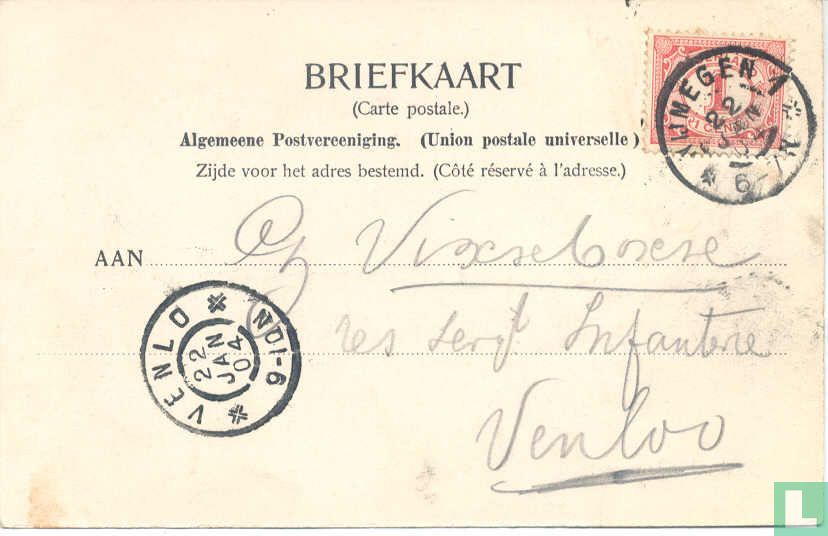 BRIEFKAART
(Carte postale.)
Algemeene Postvereeniging. (Union postale universelle)
Zijde voor het adres bestemd. (Côté réservé à l'adresse.)
NIJMEGEN 1
22
JAN
04
AAN
res Sergt Infanterie
Venloo
VENLO
22
JAN
04
9-10N
L